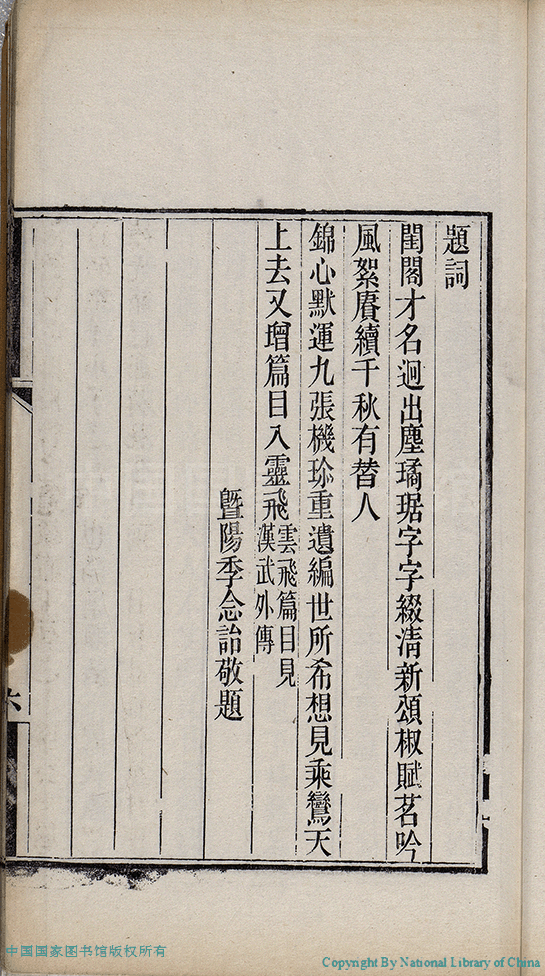 題詞
閨閣才名迥出塵璚琚字字綴清新頌椒賦茗吟
風絮賡續千秋有替人
錦心默運九張機珍重遺編世所希想見乘鸞天
上去又增篇目入靈飛雲飛篇目見
漢武外傳
暨陽季念詒敬題
六
中国国家图书馆版权所有
Copyright By National Library of China